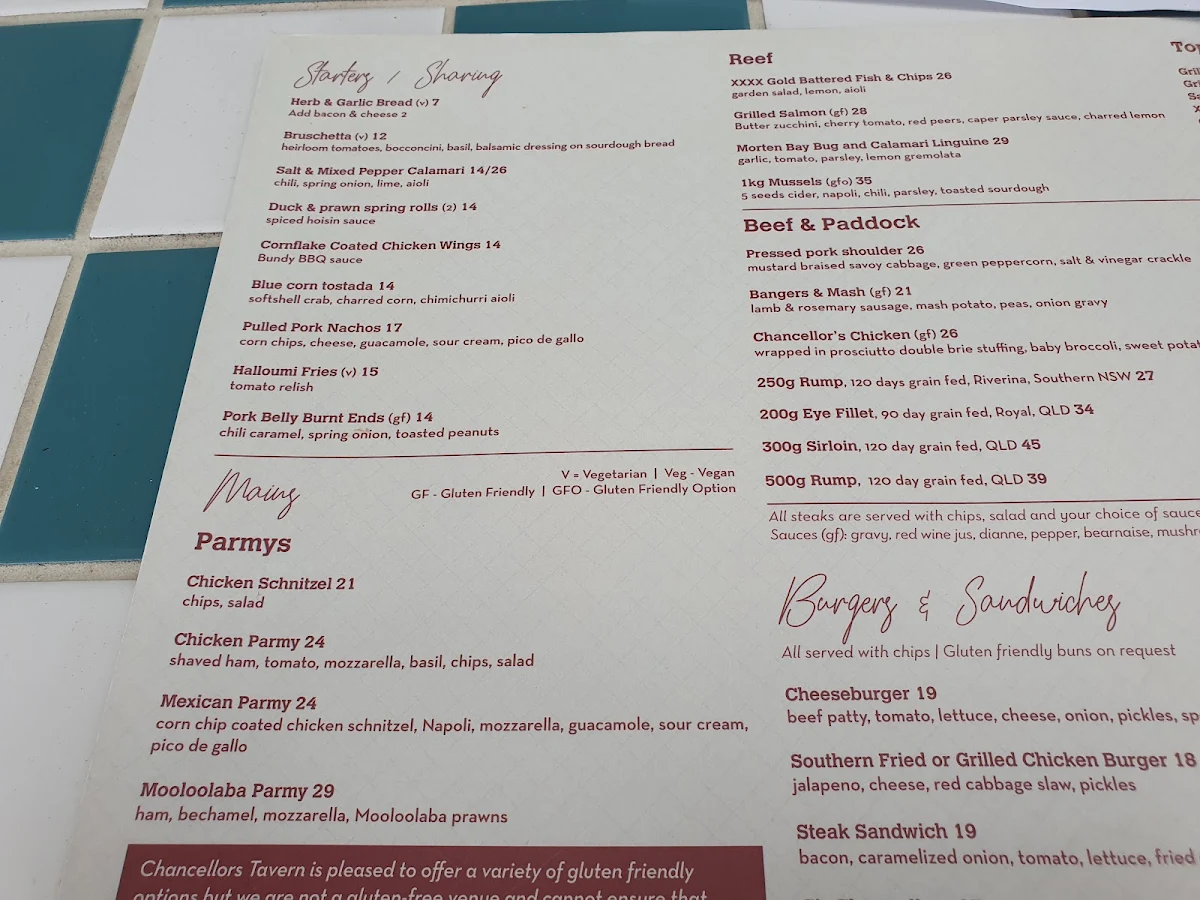 Starters / Sharing
Herb & Garlic Bread (v) 7
Add bacon & cheese 2
Bruschetta (v) 12
heirloom tomatoes, bocconcini, basil, balsamic dressing on sourdough bread
Salt & Mixed Pepper Calamari 14/26
chili, spring onion, lime, aioli
Duck & prawn spring rolls (2) 14
spiced hoisin sauce
Cornflake Coated Chicken Wings 14
Bundy BBQ sauce
Blue corn tostada 14
softshell crab, charred corn, chimichurri aioli
Pulled Pork Nachos 17
corn chips, cheese, guacamole, sour cream, pico de gallo
Halloumi Fries (v) 15
tomato relish
Pork Belly Burnt Ends (gf) 14
chili caramel, spring onion, toasted peanuts
V = Vegetarian | Veg - Vegan
GF - Gluten Friendly | GFO - Gluten Friendly Option
Mains
Parmys
Chicken Schnitzel 21
chips, salad
Chicken Parmy 24
shaved ham, tomato, mozzarella, basil, chips, salad
Mexican Parmy 24
corn chip coated chicken schnitzel, Napoli, mozzarella, guacamole, sour cream,
pico de gallo
Mooloolaba Parmy 29
ham, bechamel, mozzarella, Mooloolaba prawns
Chancellors Tavern is pleased to offer a variety of gluten friendly
options but we are not a gluten-free venue and cannot ensure that
Reef
XXXX Gold Battered Fish & Chips 26
garden salad, lemon, aioli
Grilled Salmon (gf) 28
Butter zucchini, cherry tomato, red peers, caper parsley sauce, charred lemon
Morten Bay Bug and Calamari Linguine 29
garlic, tomato, parsley, lemon gremolata
1kg Mussels (gfo) 35
5 seeds cider, napoli, chili, parsley, toasted sourdough
Beef & Paddock
Pressed pork shoulder 26
mustard braised savoy cabbage, green peppercorn, salt & vinegar crackle
Bangers & Mash (gf) 21
lamb & rosemary sausage, mash potato, peas, onion gravy
Chancellor's Chicken (gf) 26
wrapped in prosciutto double brie stuffing, baby broccoli, sweet
250g Rump, 120 days grain fed, Riverina, Southern NSW 27
200g Eye Fillet, 90 day grain fed, Royal, QLD 34
300g Sirloin, 120 day grain fed, QLD 45
500g Rump, 120 day grain fed, QLD 39
All steaks are served with chips, salad and your choice of sauce
Sauces (gf): gravy, red wine jus, dianne, pepper, bearnaise,
Burgers & Sandwiches
All served with chips | Gluten friendly buns on request
Cheeseburger 19
beef patty, tomato, lettuce, cheese, onion, pickles,
Southern Fried or Grilled Chicken Burger 18
jalapeno, cheese, red cabbage slaw, pickles
Steak Sandwich 19
bacon, caramelized onion, tomato, lettuce, fried